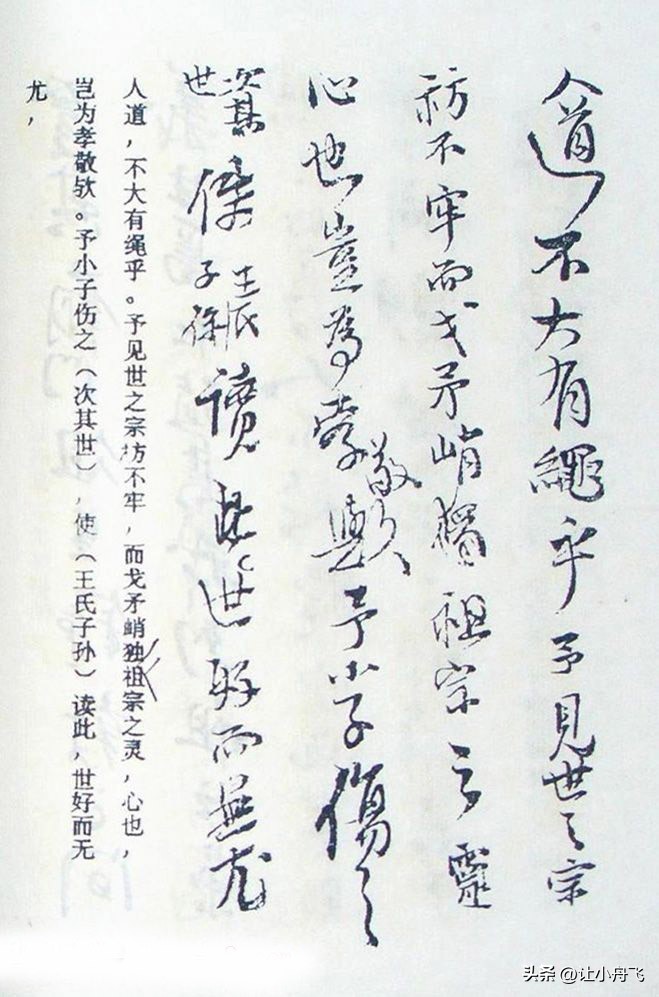 人道不大有繩乎予見世之宗
祊不牢而戈矛峭獨祖宗之靈
心也豈為孝敬歟予小子傷之
次其世使王氏子孫讀此世好而無尤
人道，不大有绳乎。予见世之宗祊不牢，而戈矛峭独祖宗之灵，心也，
岂为孝敬欤。予小子伤之（次其世），使（王氏子孙）读此，世好而无
尤，
头条 @让小舟飞